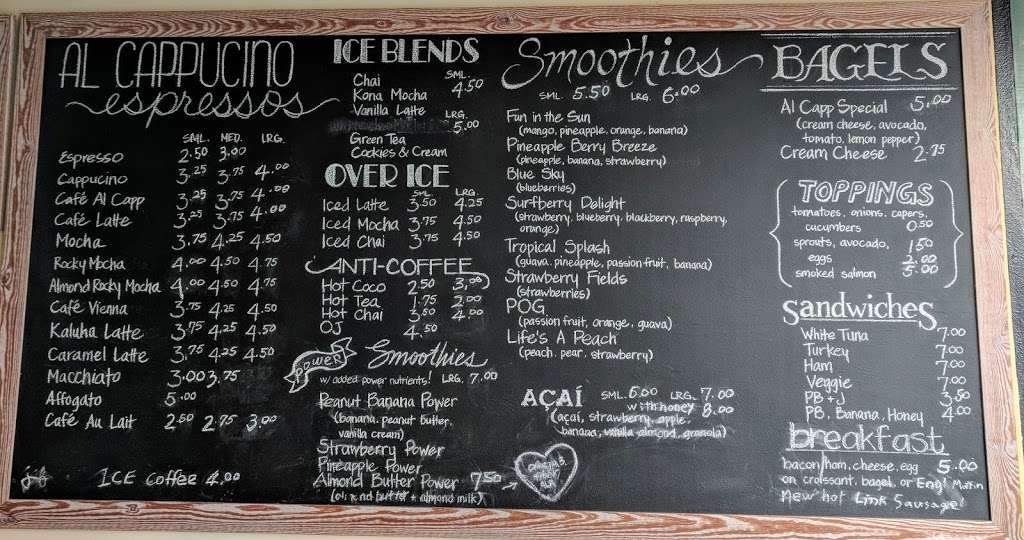 AL CAPPUCINO
espressos
SML. MED. LRG.
Espresso 2.50 3.00
Cappucino 3.25 3.75 4.00
Café Al Capp 3.25 3.75 4.00
Café Latte 3.25 3.75 4.00
Mocha 3.75 4.25 4.50
Rocky Mocha 4.00 4.50 4.75
Almond Rocky Mocha 4.00 4.50 4.75
Café Vienna 3.75 4.25 4.50
Kaluha Latte 3.75 4.25 4.50
Caramel Latte 3.75 4.25 4.50
Macchiato 3.00 3.75
Affogato 5.00
Café Au Lait 2.50 2.75 3.00
ICE Coffee 4.00
ICE BLENDS
SML.
Chai 4.50
Kona Mocha
Vanilla Latte LRG.
5.00
Green Tea
Cookies & Cream
OVER ICE
SML LRG.
Iced Latte 3.50 4.25
Iced Mocha 3.75 4.50
Iced Chai 3.75 4.50
ANTI-COFFEE
Hot Coco 2.50 3.00
Hot Tea 1.75 2.00
Hot Chai 3.50 4.00
OJ 4.50
POWER Smoothies
w/ added power nutrients! LRG. 7.00
Peanut Banana Power
(banana, peanut butter,
vanilla cream)
Strawberry Power
Pineapple Power
Almond Butter Power 7.50
butter + almond milk)
Smoothies
SML. 5.50 LRG. 6.00
Fun in the Sun
(mango, pineapple, orange, banana)
Pineapple Berry Breeze
(pineapple, banana, strawberry)
Blue Sky
(blueberries)
Surfberry Delight
(strawberry, blueberry, blackberry, raspberry,
orange)
Tropical Splash
(guava, pineapple, passion fruit, banana)
Strawberry Fields
(strawberries)
POG
(passion fruit, orange, guava)
Life's A Peach
(peach, pear, strawberry)
AÇAÍ SML. 6.00 LRG. 7.00
with honey 8.00
(açaí, strawberry, apple,
banana, vanilla almond, granola)
BAGELS
Al Capp Special 5.00
(cream cheese, avocado,
tomato, lemon pepper)
Cream Cheese 2.75
TOPPINGS
tomatoes, onions, capers,
cucumbers 0.50
sprouts, avocado, 1.50
eggs 2.00
smoked salmon 5.00
Sandwiches
White Tuna 7.00
Turkey 7.00
Ham 7.00
Veggie 7.00
PB + J 3.50
PB, Banana, Honey 4.00
breakfast
bacon/ham, cheese, egg 5.00
on croissant, bagel, or Engl Muffin
New hot Link Sausage